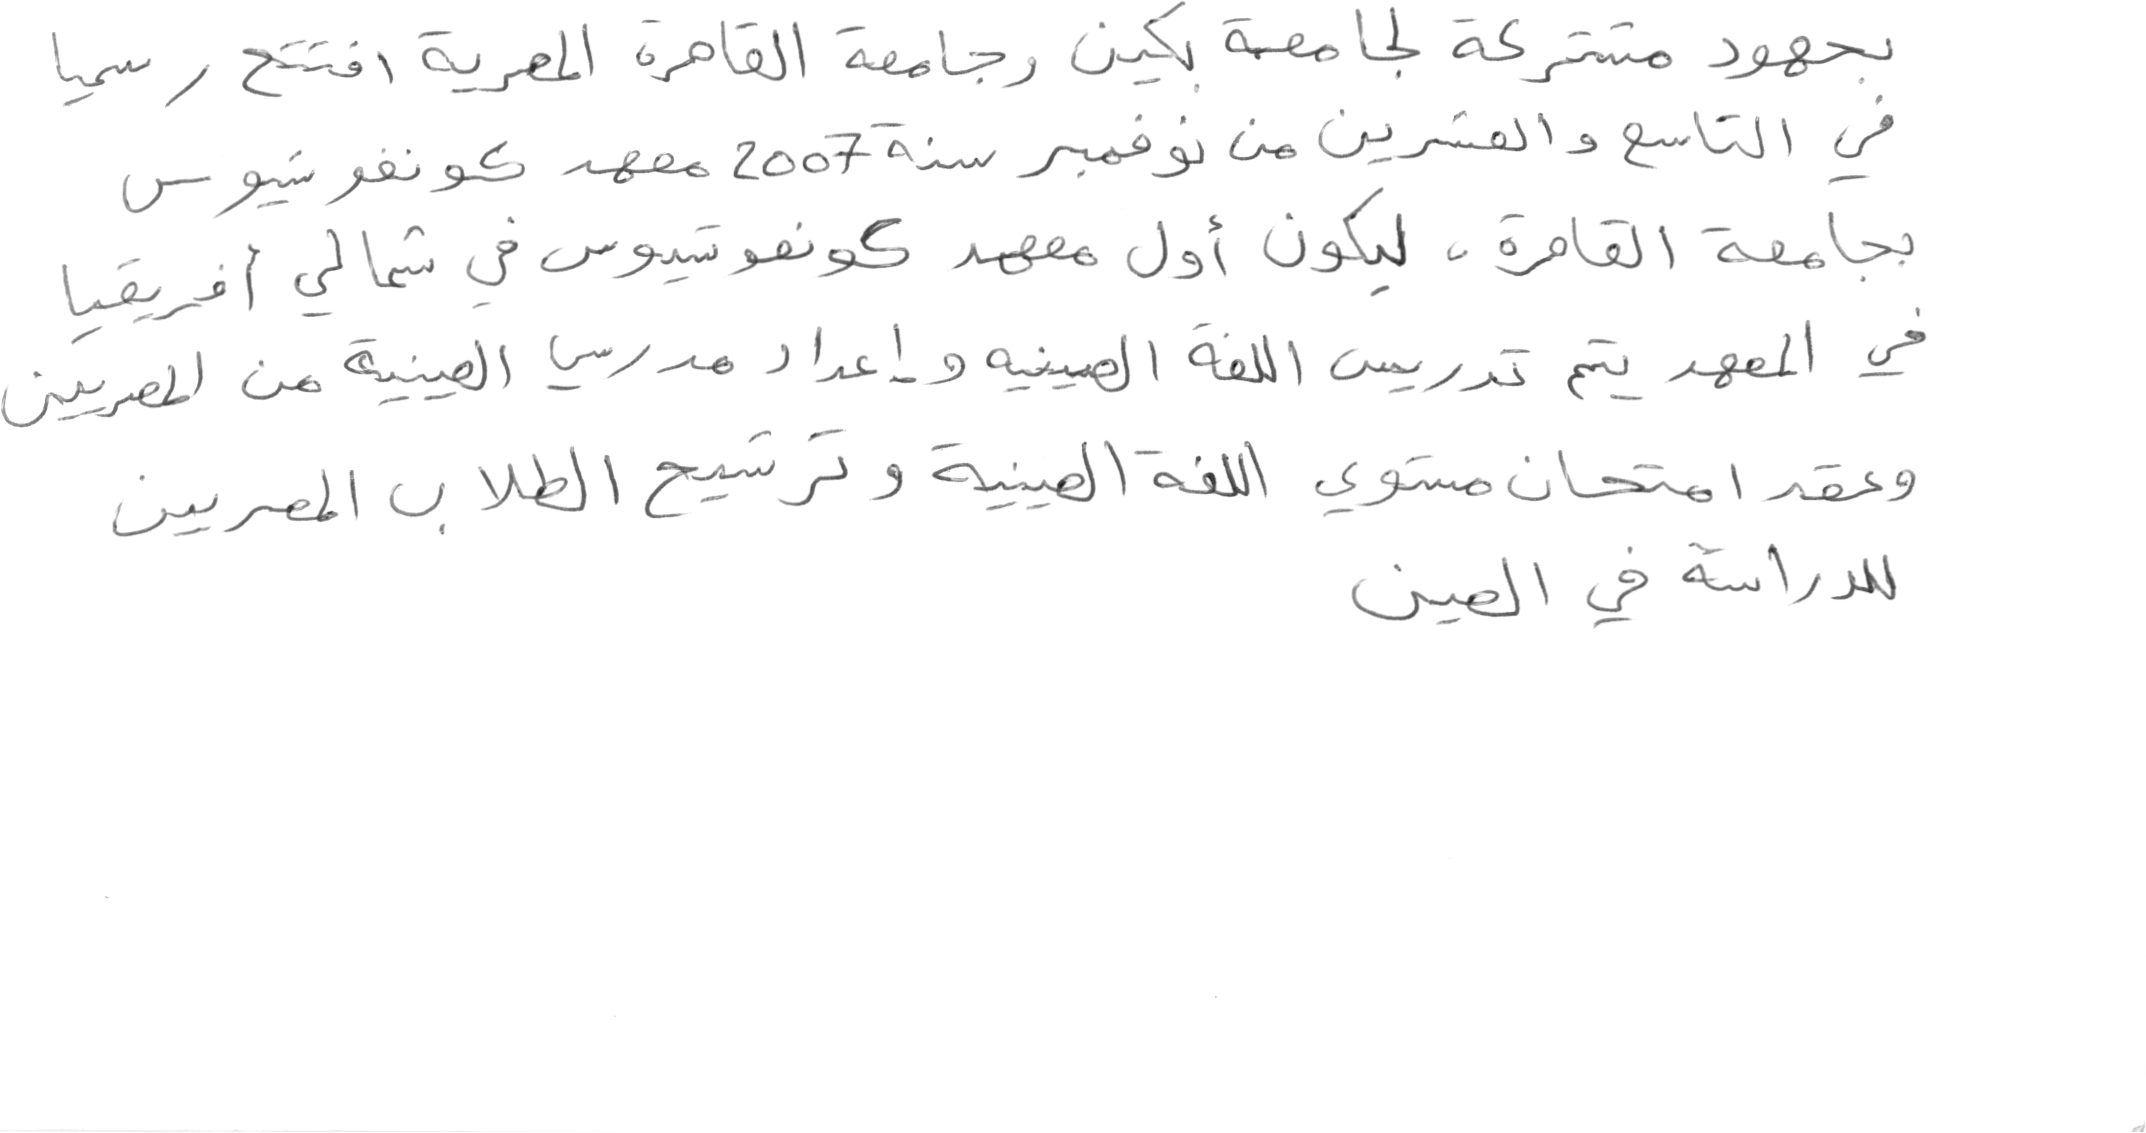 بجهود مشتركة لجامعة بكين وجامعة القاهرة المصرية افتتح رسميا
في التاسع والعشرين من نوفمبر سنة 2007 معهد كونفوشيوس
بجامعة القاهرة، ليكون أول معهد كونفوشيوس في شمالي أفريقيا
في المعهد يتم تدريس اللغة الصينيه وإعداد مدرسي الصينية من المصريين
وعقد امتحان مستوي اللغة الصينية وترشيح الطلاب المصريين
للدراسة في الصين